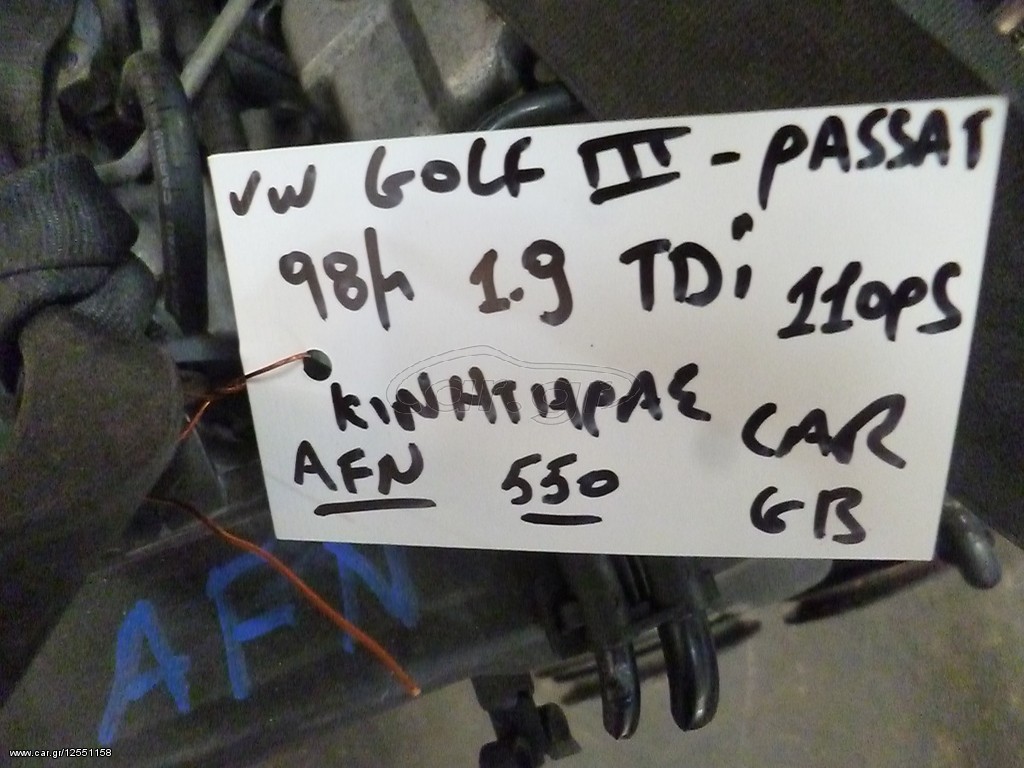 VW GOLF III - PASSAT
98μ 1.9 TDi 110PS
ΚΙΝΗΤΗΡΑΣ
CAR
AFN 550
GB
AFN
www.car.gr/12551158